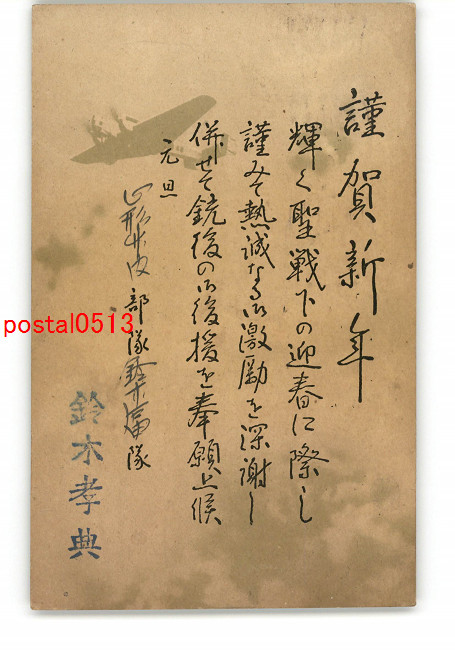 謹賀新年
輝く聖戦下の迎春に際し
謹みて熱誠なる御激励を深謝し
併せて銃後の御後援を奉願上候
元旦
部隊 隊
鈴木孝典
postal0513